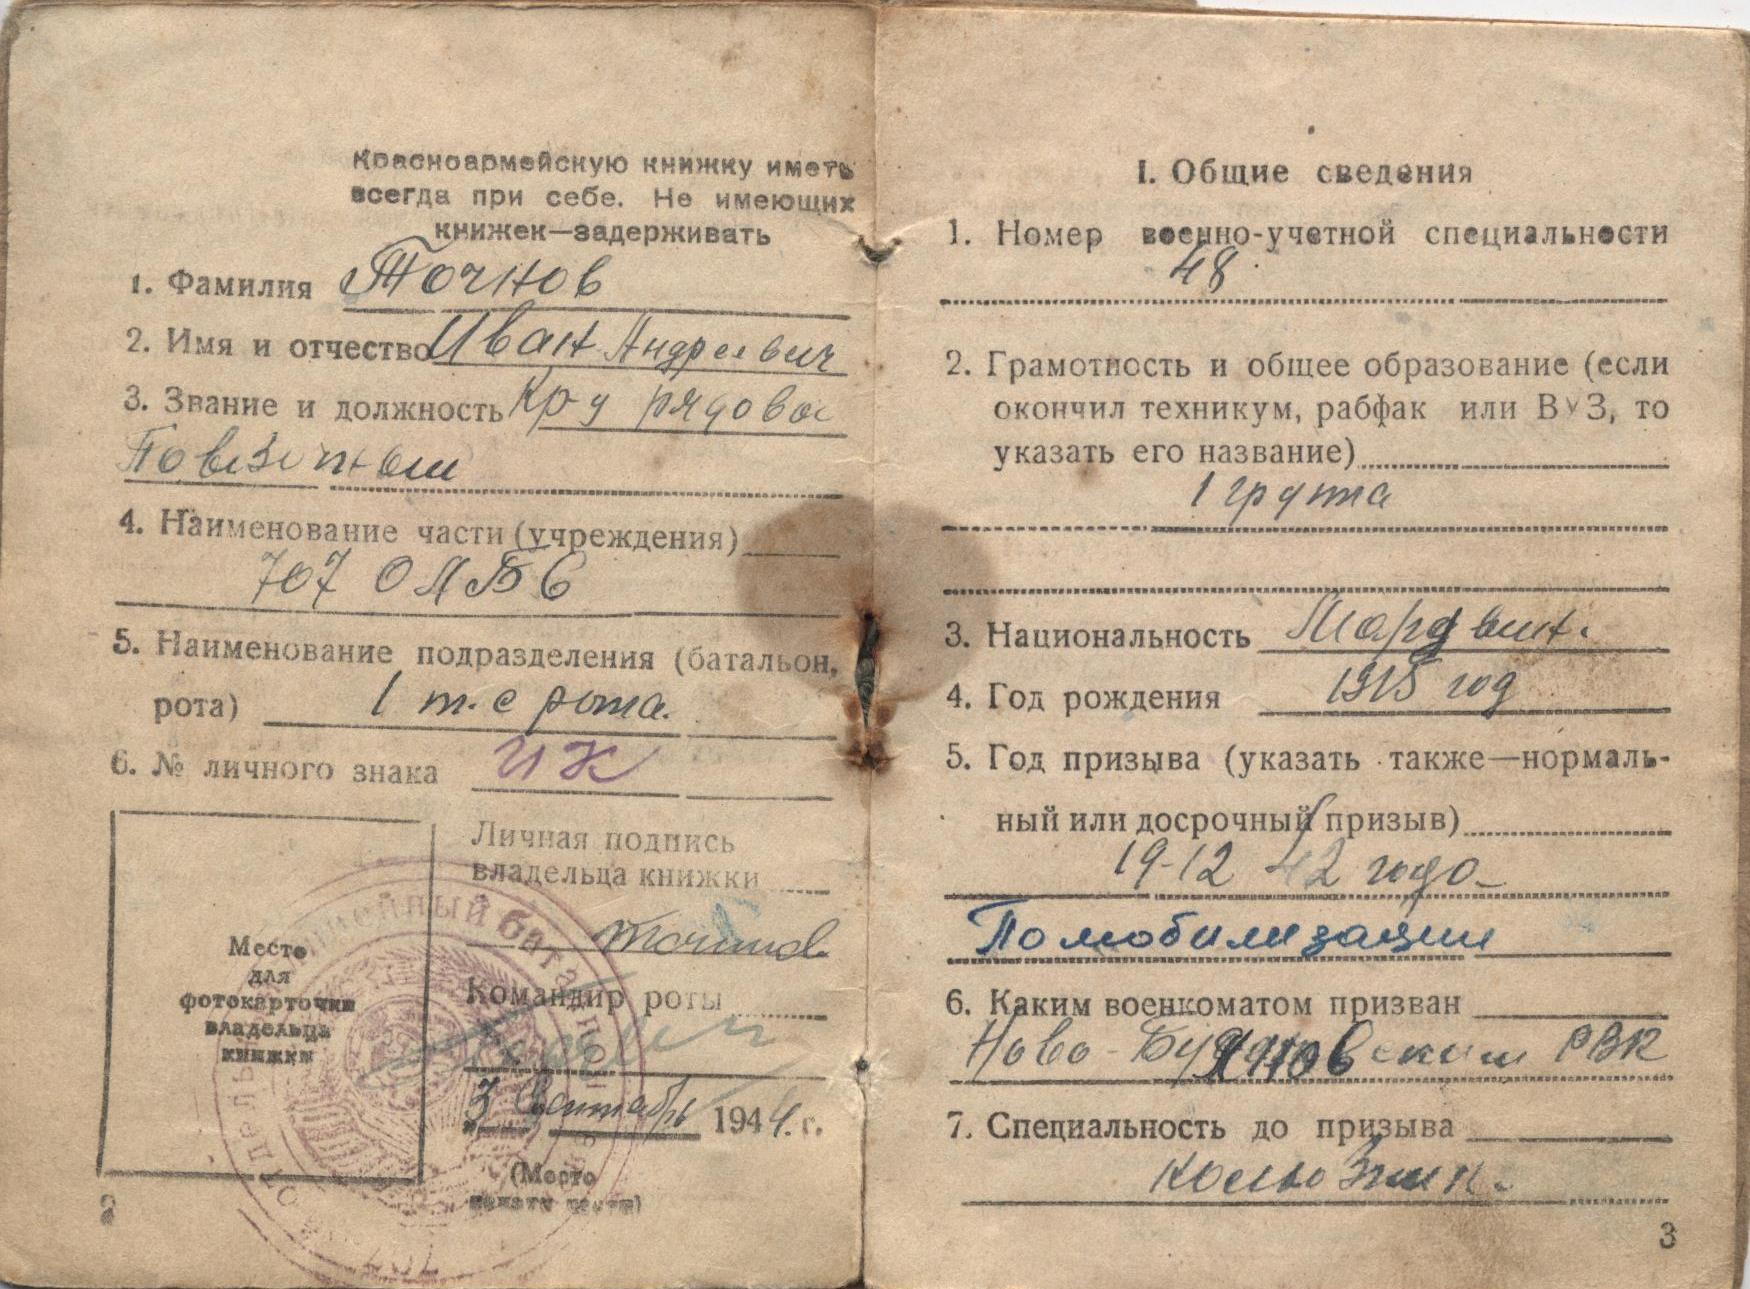 Красноармейскую книжку иметь
всегда при себе. Не имеющих
книжек—задерживать
1. Фамилия Точнов
2. Имя и отчество Иван Андреевич
3. Звание и должность Кр-ц рядовой
Повозочный
4. Наименование части (учреждения)
707 ОЛБС
5. Наименование подразделения (батальон,
рота) 1 т.с рота.
6. № личного знака
Место
для
фотокарточки
владельца
книжки
Личная подпись
владельца книжки
Точнов
Командир роты
3 Сентябрь 1944. г.
(Место
печати части)
2
I. Общие сведения
1. Номер военно-учетной специальности
48
2. Грамотность и общее образование (если
окончил техникум, рабфак или ВУЗ, то
указать его название)
1 группа
3. Национальность Мордвин.
4. Год рождения 1915 год
5. Год призыва (указать также—нормаль-
ный или досрочный призыв)
19-12 42 года
По мобилизации
6. Каким военкоматом призван
Ново-Буяновским РВК
7. Специальность до призыва
колхозник.
3